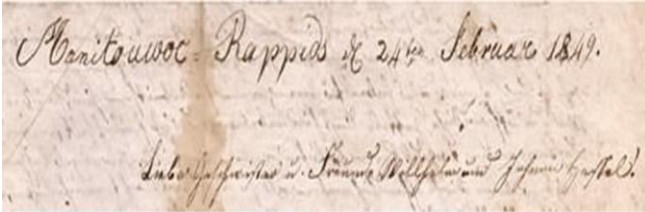 Manitouwoc - Rappids d 24ten Februar 1849.
Liebe Geschwister u. Freunde Willhelm und